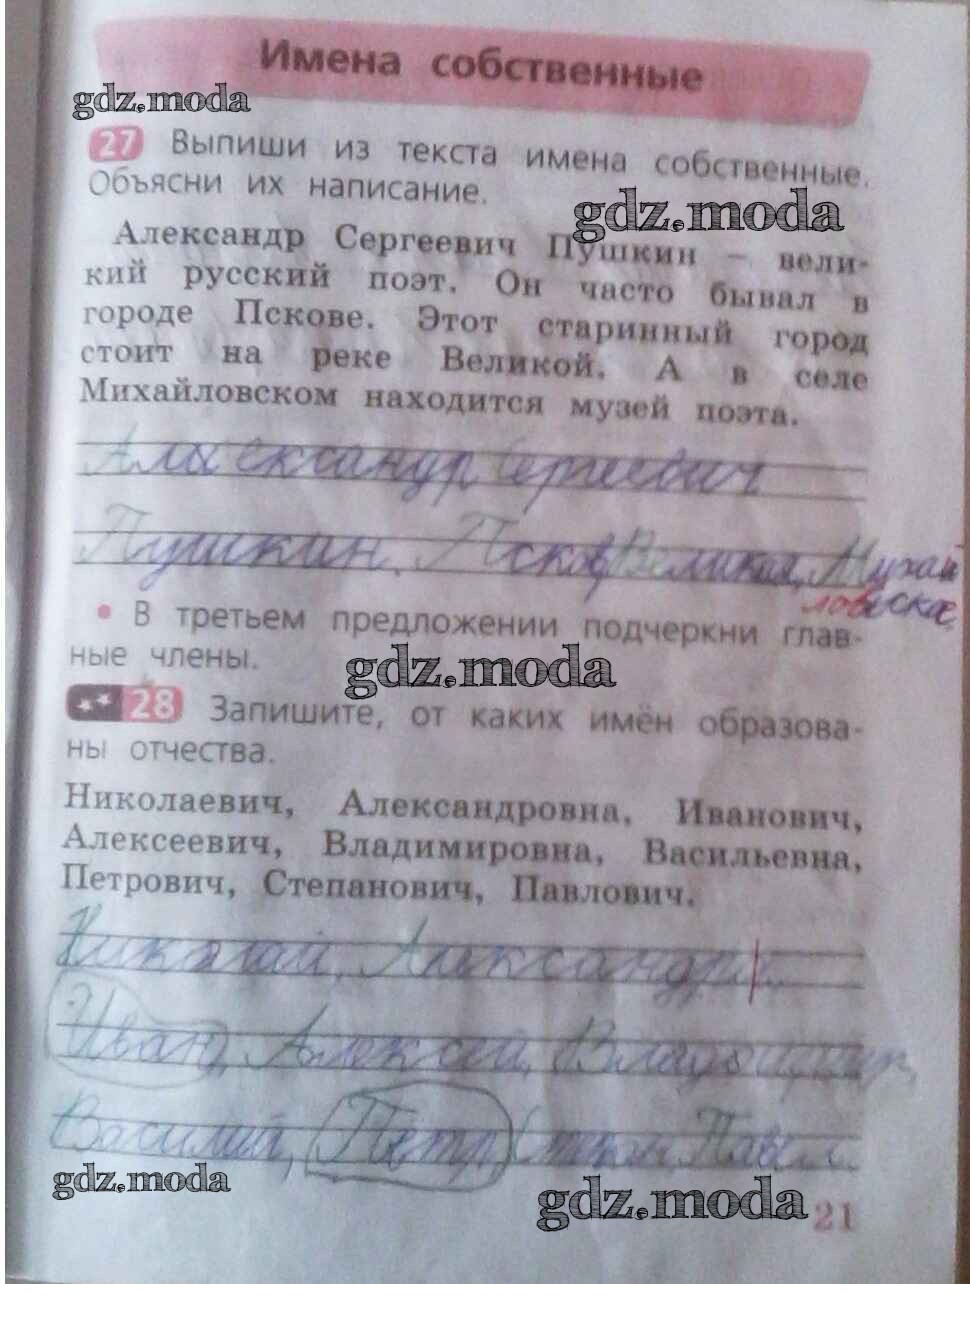 Имена собственные
gdz.moda
27 Выпиши из текста имена собственные.
Объясни их написание.
gdz.moda
Александр Сергеевич Пушкин – вели-
кий русский поэт. Он часто бывал в
городе Пскове. Этот старинный город
стоит на реке Великой. А в селе
Михайловском находится музей поэта.
Александр Сергеевич
Пушкин, Псков, Великая, Михай
ловское.
• В третьем предложении подчеркни глав-
ные члены.
gdz.moda
28 Запишите, от каких имён образова-
ны отчества.
Николаевич, Александровна, Иванович,
Алексеевич, Владимировна, Васильевна,
Петрович, Степанович, Павлович.
Николай, Александр
Иван, Алексей, Владимир,
Василий, Петр, Степан, Павел.
gdz.moda
gdz.moda
21